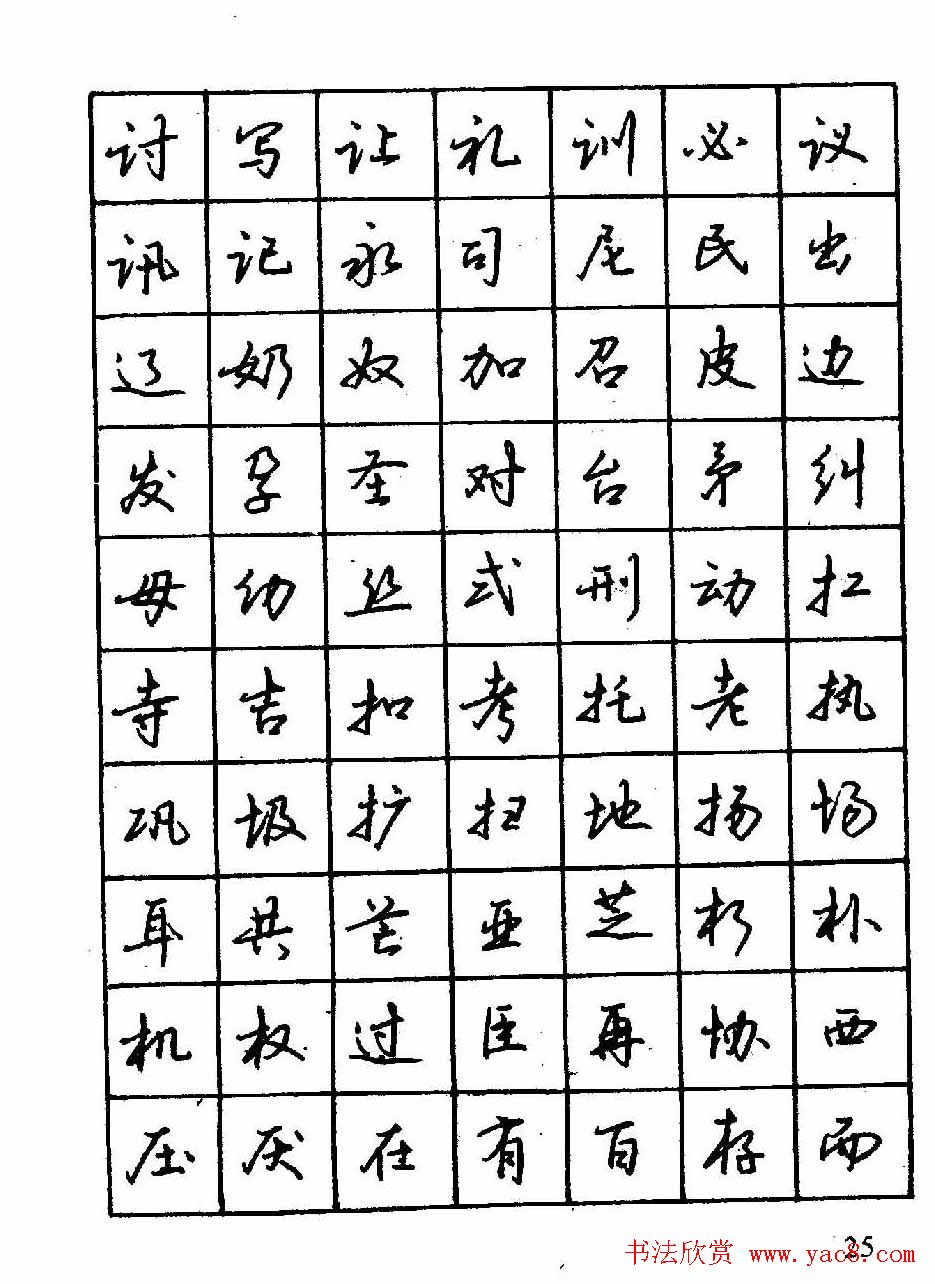 讨写让礼训必议
讯记永司尼民出
辽奶奴加召皮边
发孕圣对台矛纠
母幼丝式刑动扛
寺吉扣考托老执
巩圾扩扫地扬场
耳共芒亚芝朽朴
机权过臣再协西
压厌在有百存而
25
书法欣赏 www.yac8.com